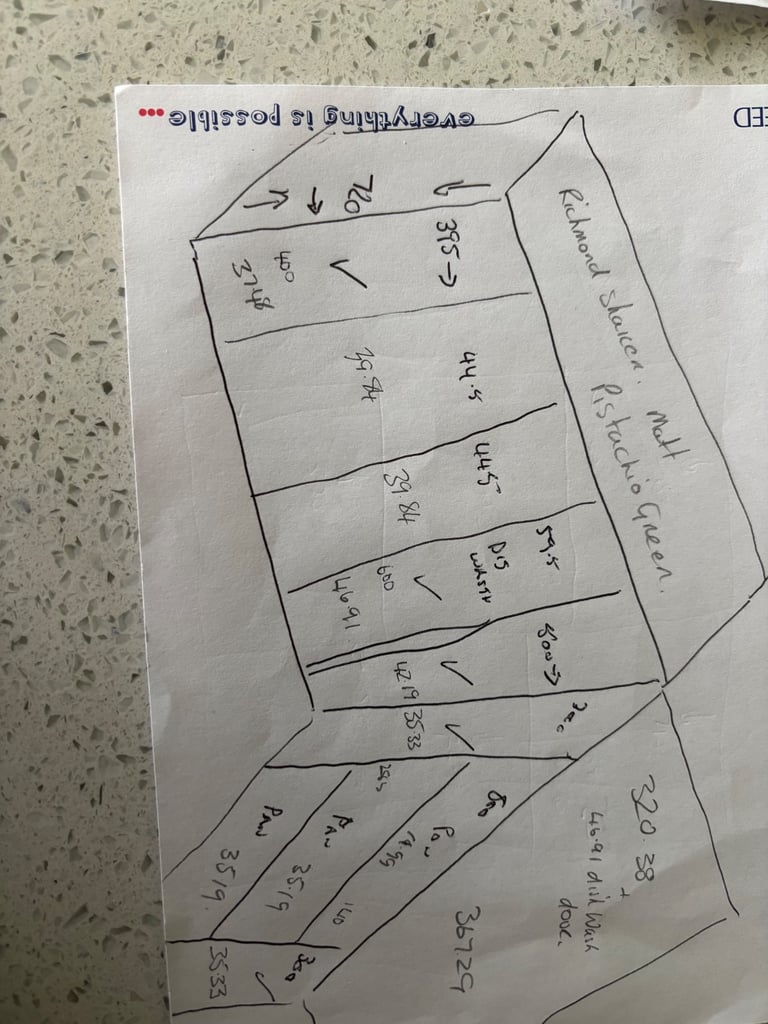 everything is possible...
EED
Richmond Shaker. Matt
Pistachio Green.
720
395 →
400
37.48
44.5
39.84
445
39.84
59.5
DIS
WASSH
600
46.91
800 →
42.19
35.33
285
800
PAN
PAN
35.19
PAN
35.19.
140
35.33
320.38 +
46.91 dish wash
door.
367.29